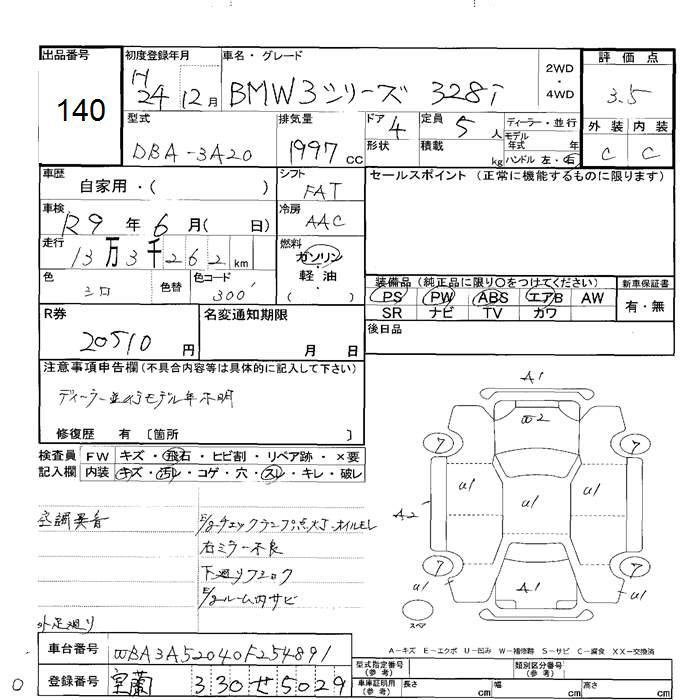 出品番号 初度登録年月 車名・グレード 2WD・4WD 評価点
140 H24 12月 BMW3シリーズ 328i 3.5
型式 排気量 ドア 4 定員 5人 ディーラー・並行 外装 内装
DBA-3A20 1997cc 形状 積載 kg モデル年式 年 ハンドル 左・右 C C
車歴 シフト セールスポイント (正常に機能するものに限ります)
自家用・( ) FAT
車検 R9年6月( 日) 冷房 AAC
走行 13万3千262km 燃料 ガソリン・軽油 ( )
色 シロ 色替 色コード 300 装備品 (純正品に限り○をつけてください) 新車保証書
PS PW ABS エアB AW 有・無
SR ナビ TV カワ
R券 20510円 名変通知期限 月 日 後日品
注意事項申告欄 (不具合内容等は具体的に記入して下さい)
ディーラー並行モデル年不明
修復歴 有 〔箇所 〕
検査員 FW キズ・飛石・ヒビ割・リペア跡・×要
記入欄 内装 キズ・汚れ・コゲ・穴・スレ・キレ・破レ
空調異音 E/gチェックランプ点灯・オイルモレ
右ミラー不良
下廻りフショク
E/gルーム内サビ
外足廻り
A1
W2
7 7
U1 U1 U1
A2
7 7
A1
U1 U1
スペア
A-キズ E-エクボ U-凹み W-補修跡 S-サビ C-腐食 XX-交換済
車台番号 WBA3A52040F254891
型式指定番号 (参考) 類別区分番号 (参考)
登録番号 室蘭 330 せ 5029
車体証明用 (参考) 長さ cm 幅 cm 高さ cm
0